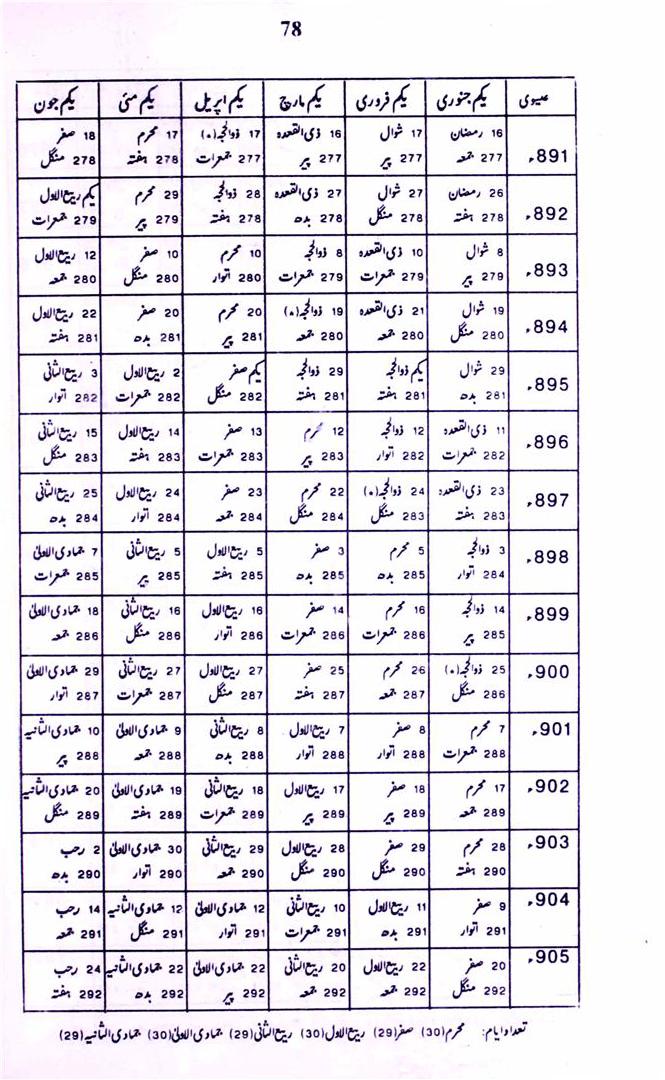 78
عیسوی یکم جنوری یکم فروری یکم مارچ یکم اپریل یکم مئی یکم جون
891ء 16 رمضان 17 شوال 16 ذی القعدہ 17 ذوالحجہ (*) 17 محرم 18 صفر
277 جمعہ 277 پیر 277 پیر 277 جمعرات 278 ہفتہ 278 منگل
892ء 26 رمضان 27 شوال 27 ذی القعدہ 28 ذوالحجہ 29 محرم یکم ربیع الاول
278 ہفتہ 278 منگل 278 بدھ 278 ہفتہ 279 پیر 279 جمعرات
893ء 8 شوال 10 ذی القعدہ 8 ذوالحجہ 10 محرم 10 صفر 12 ربیع الاول
279 پیر 279 جمعرات 279 جمعرات 280 اتوار 280 منگل 280 جمعہ
894ء 19 شوال 21 ذی القعدہ 19 ذوالحجہ (*) 20 محرم 20 صفر 22 ربیع الاول
280 منگل 280 جمعہ 280 جمعہ 281 پیر 281 بدھ 281 ہفتہ
895ء 29 شوال یکم ذوالحجہ 29 ذوالحجہ یکم صفر 2 ربیع الاول 3 ربیع الثانی
281 بدھ 281 ہفتہ 281 ہفتہ 282 منگل 282 جمعرات 282 اتوار
896ء 11 ذی القعدہ 12 ذوالحجہ 12 محرم 13 صفر 14 ربیع الاول 15 ربیع الثانی
282 جمعرات 282 اتوار 283 پیر 283 جمعرات 283 ہفتہ 283 منگل
897ء 23 ذی القعدہ 24 ذوالحجہ (*) 22 محرم 23 صفر 24 ربیع الاول 25 ربیع الثانی
283 ہفتہ 283 منگل 284 منگل 284 جمعہ 284 اتوار 284 بدھ
898ء 3 ذوالحجہ 5 محرم 3 صفر 5 ربیع الاول 5 ربیع الثانی 7 جمادی الاولیٰ
284 اتوار 285 بدھ 285 بدھ 285 ہفتہ 285 پیر 285 جمعرات
899ء 14 ذوالحجہ 16 محرم 14 صفر 16 ربیع الاول 16 ربیع الثانی 18 جمادی الاولیٰ
285 پیر 286 جمعرات 286 جمعرات 286 اتوار 286 منگل 286 جمعہ
900ء 25 ذوالحجہ (*) 26 محرم 25 صفر 27 ربیع الاول 27 ربیع الثانی 29 جمادی الاولیٰ
286 منگل 287 جمعہ 287 ہفتہ 287 منگل 287 جمعرات 287 اتوار
901ء 7 محرم 8 صفر 7 ربیع الاول 8 ربیع الثانی 9 جمادی الاولیٰ 10 جمادی الثانیہ
288 جمعرات 288 اتوار 288 اتوار 288 بدھ 288 جمعہ 288 پیر
902ء 17 محرم 18 صفر 17 ربیع الاول 18 ربیع الثانی 19 جمادی الاولیٰ 20 جمادی الثانیہ
289 جمعہ 289 پیر 289 پیر 289 جمعرات 289 ہفتہ 289 منگل
903ء 28 محرم 29 صفر 28 ربیع الاول 29 ربیع الثانی 30 جمادی الاولیٰ 2 رجب
290 ہفتہ 290 منگل 290 منگل 290 جمعہ 290 اتوار 290 بدھ
904ء 9 صفر 11 ربیع الاول 10 ربیع الثانی 12 جمادی الاولیٰ 12 جمادی الثانیہ 14 رجب
291 اتوار 291 بدھ 291 جمعرات 291 اتوار 291 منگل 291 جمعہ
905ء 20 صفر 22 ربیع الاول 20 ربیع الثانی 22 جمادی الاولیٰ 22 جمادی الثانیہ 24 رجب
292 منگل 292 جمعہ 292 جمعہ 292 پیر 292 بدھ 292 ہفتہ
تعداد ایام: محرم (30) صفر (29) ربیع الاول (30) ربیع الثانی (29) جمادی الاولیٰ (30) جمادی الثانیہ (29)